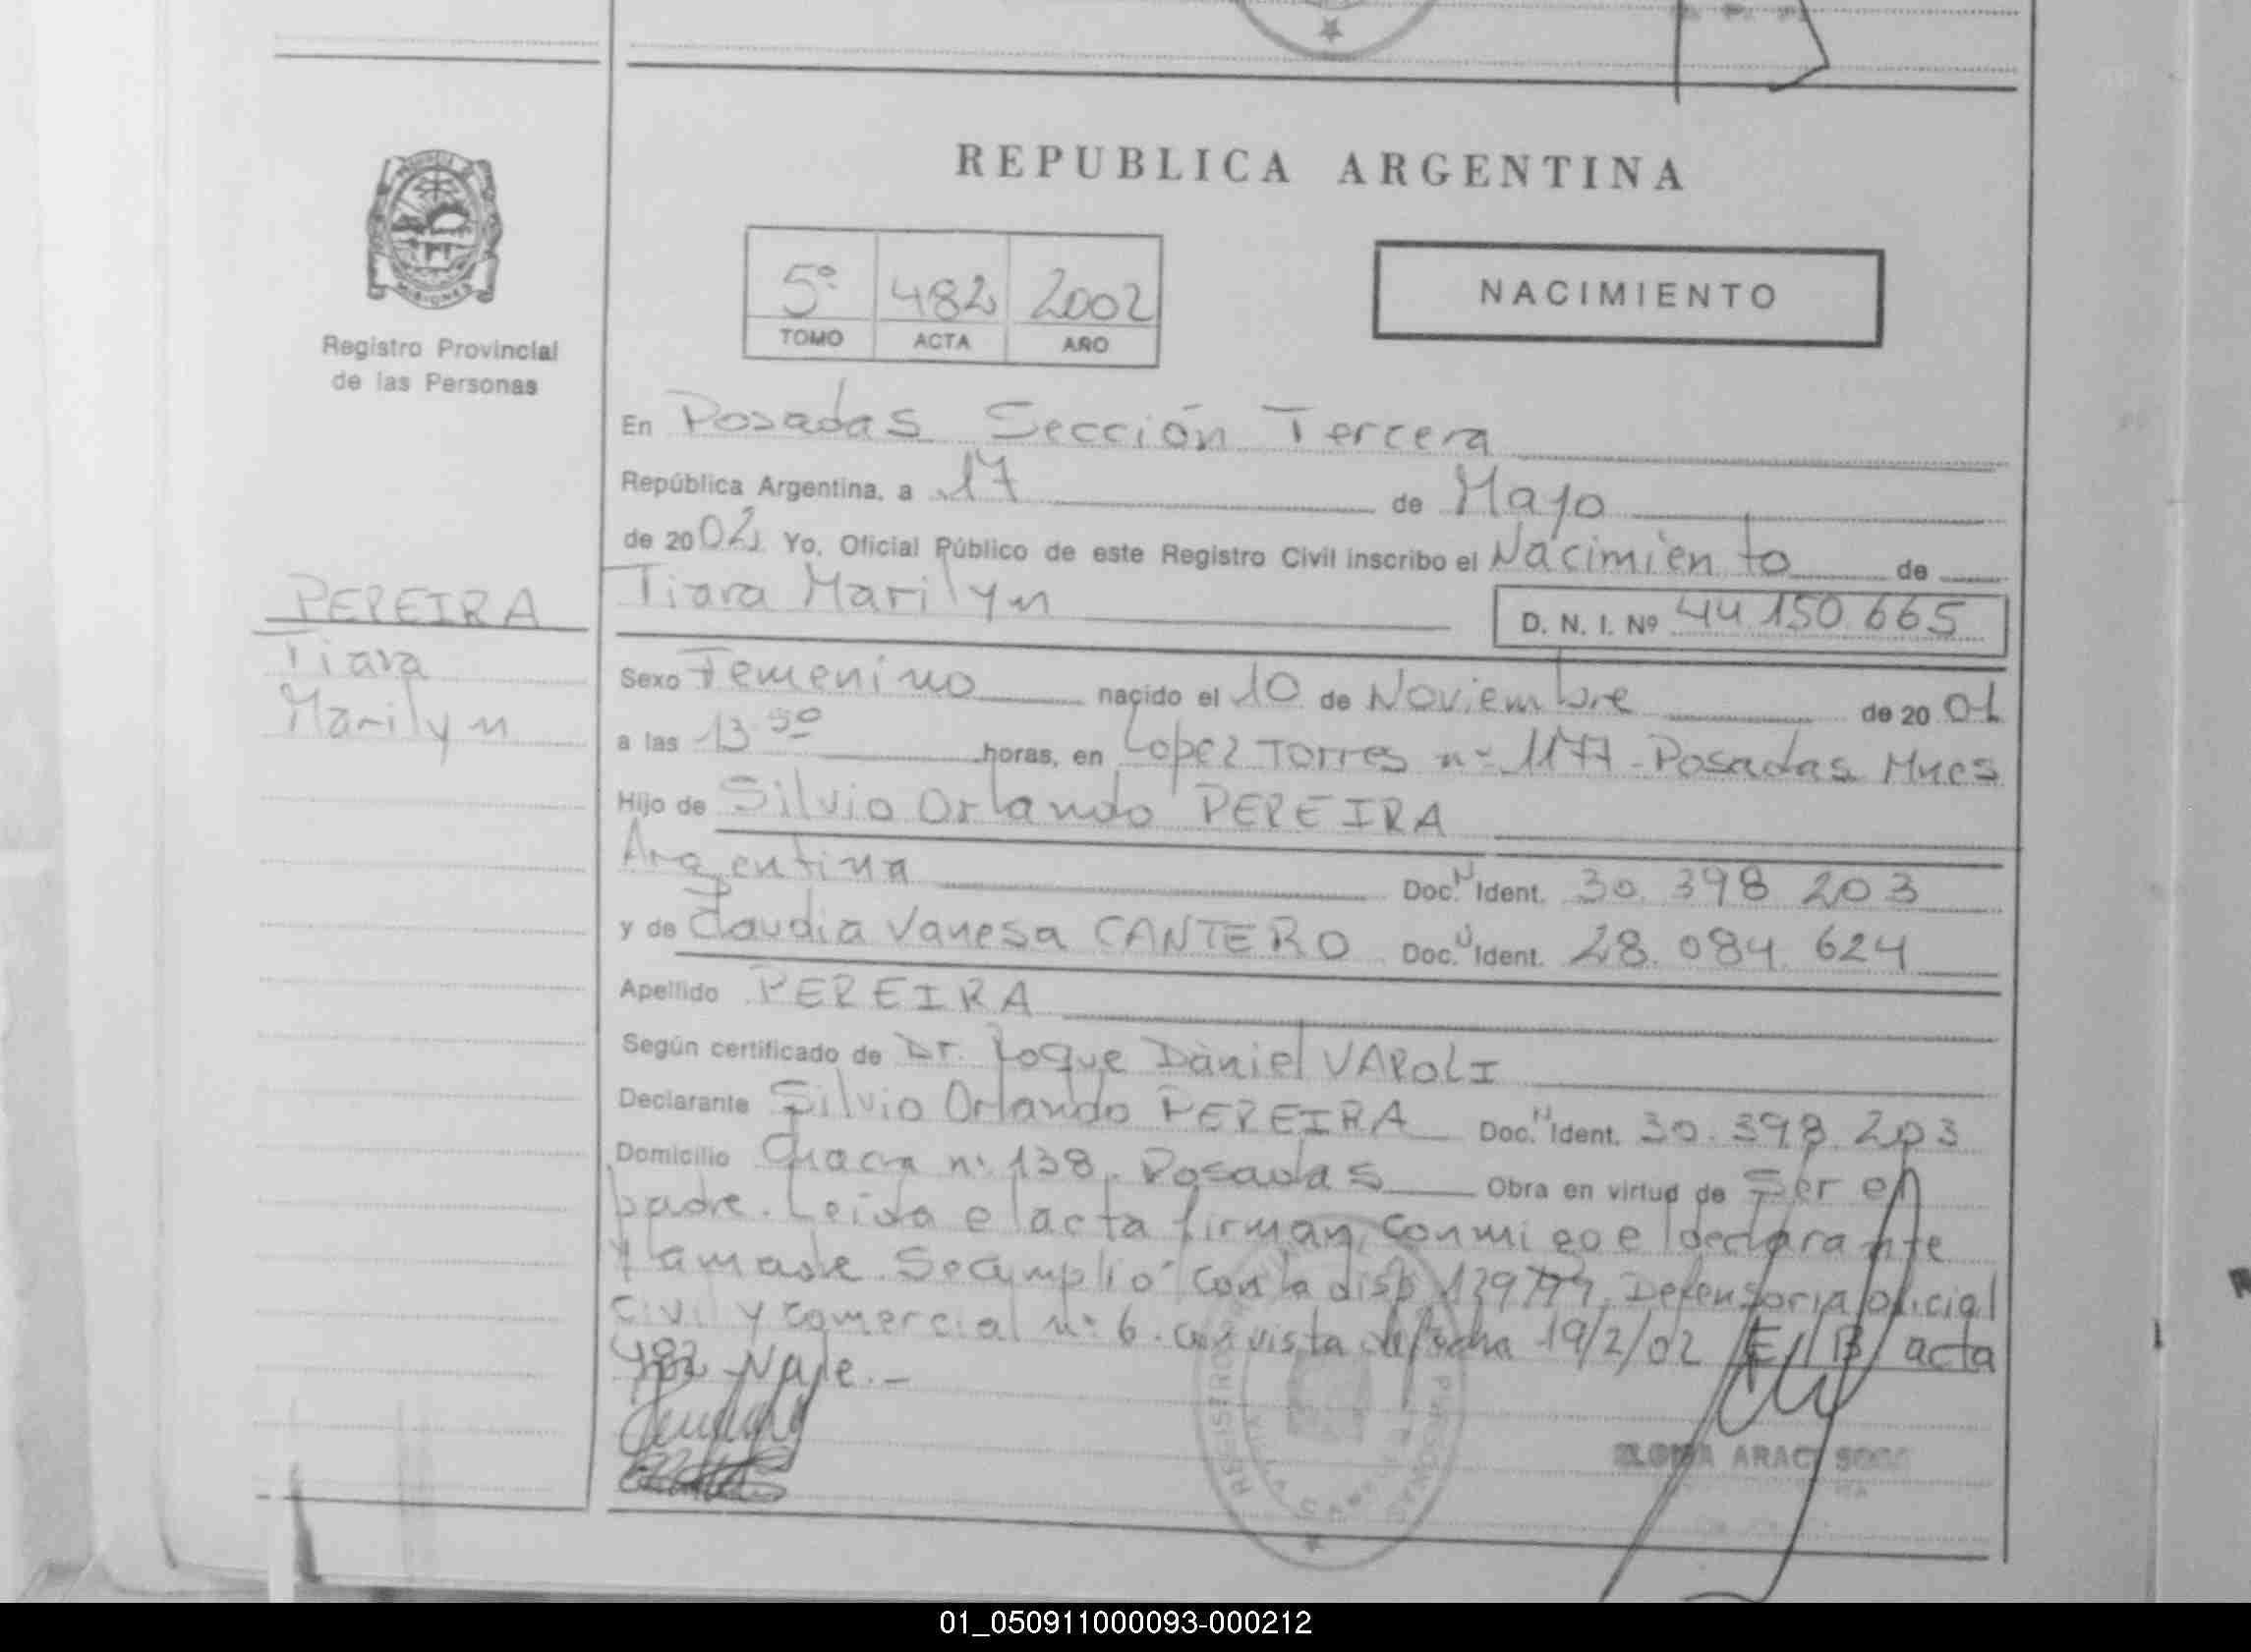 REPUBLICA ARGENTINA
MISIONES
Registro Provincial
de las Personas
5º 482 2002
TOMO ACTA AÑO
NACIMIENTO
En Posadas Sección Tercera
República Argentina, a 17 de Mayo
de 2002 Yo, Oficial Público de este Registro Civil inscribo el Nacimiento de
Tiara Marilyn D. N. I. Nº 44 150 665
PEREIRA
Tiara
Marilyn
Sexo Femenino nacido el 10 de Noviembre de 2001
a las 13 50 horas, en Lopez Torres nº 1177 - Posadas Mnes
Hijo de Silvio Orlando PEREIRA
Argentina Doc. N Ident. 30. 398 203
y de Claudia Vanesa CANTERO Doc. Ident. 28. 084 624
Apellido PEREIRA
Según certificado de Dr. Roque Daniel VAROLI
Declarante Silvio Orlando PEREIRA Doc. N Ident. 30. 398. 203
Domicilio Chacra nº 138. Posadas Obra en virtud de Ser el
padre. Leida el acta firman conmigo el declarante
y la madre. Se cumplio con la disp Defensoria oficial
Civil y comercial nº 6. con vista de fecha 19/2/02 E// B/ acta
482 Vale.-
REGISTRO PERSONAS
ARAC
01_050911000093-000212